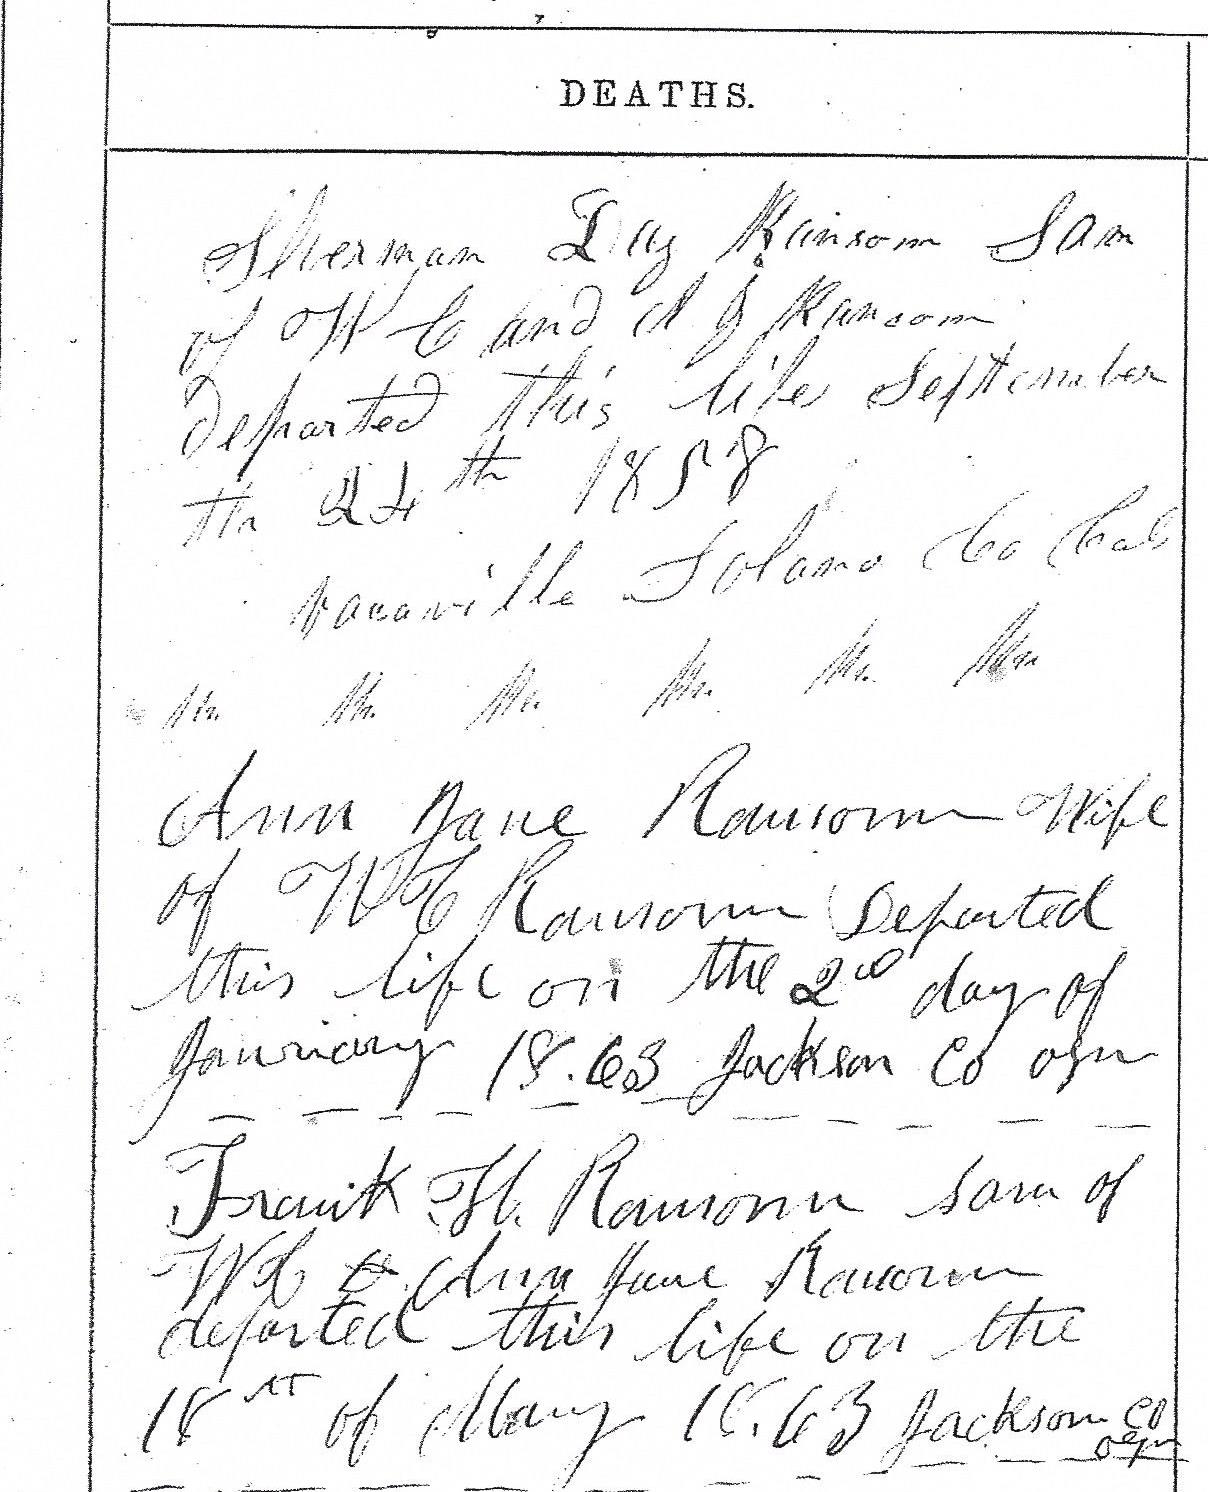 DEATHS.
Sherman Day Ransom Son
of W C and A J Ransom
departed this life September
th 24th 1858
vacaville Solano Co Cal
Ann Jane Ransom Wife
of W C Ransom Departed
this life on the 2nd day of
January 18.63 Jackson Co ogn
Frank H. Ransom son of
W C & Ann Jane Ransom
departed this life on the
18th of May 18.63 Jackson Co
ogn